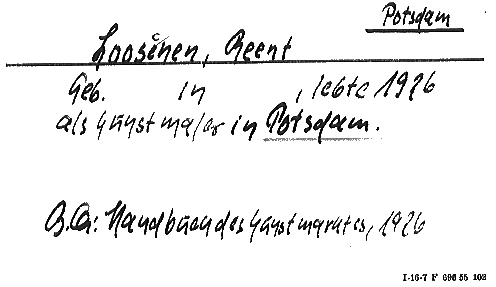 Potsdam
Looschen, Reent
Geb. in , lebte 1926
als Kunstmaler in Potsdam.
B.A.: Handbuch des Kunstmarktes, 1926
I-16-7 F 696 55 102